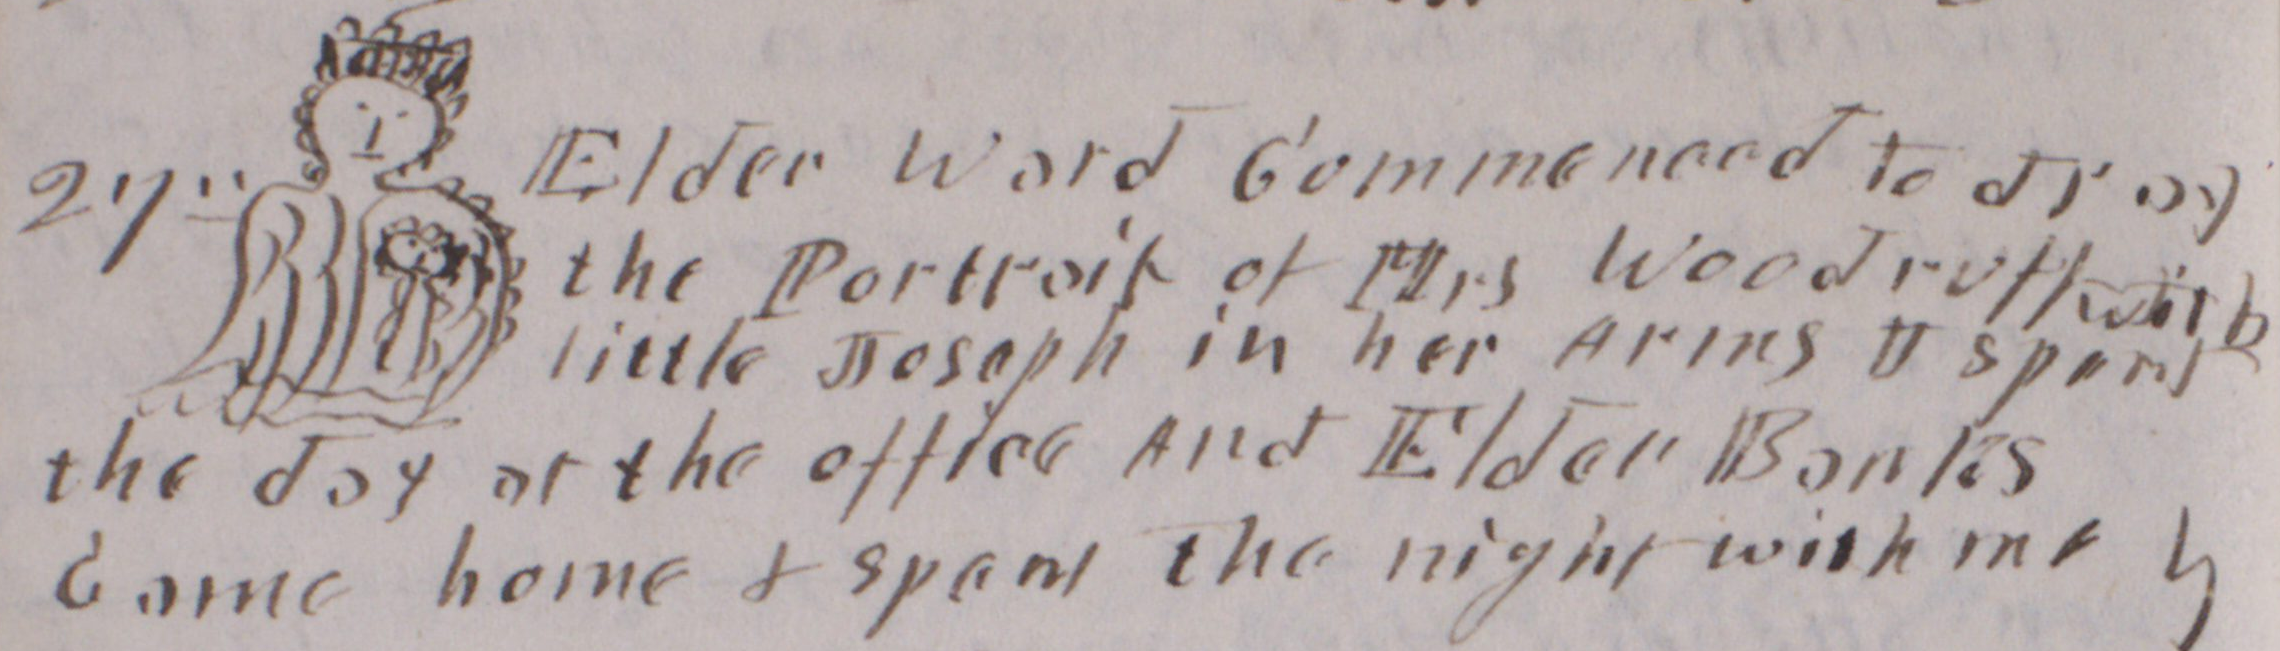 27th Elder Ward Commenced to draw
the Portrait of Mrs Woodruff with
little Joseph in her Arms I spent
the day at the office And Elder Banks
Came home & spent the night with me